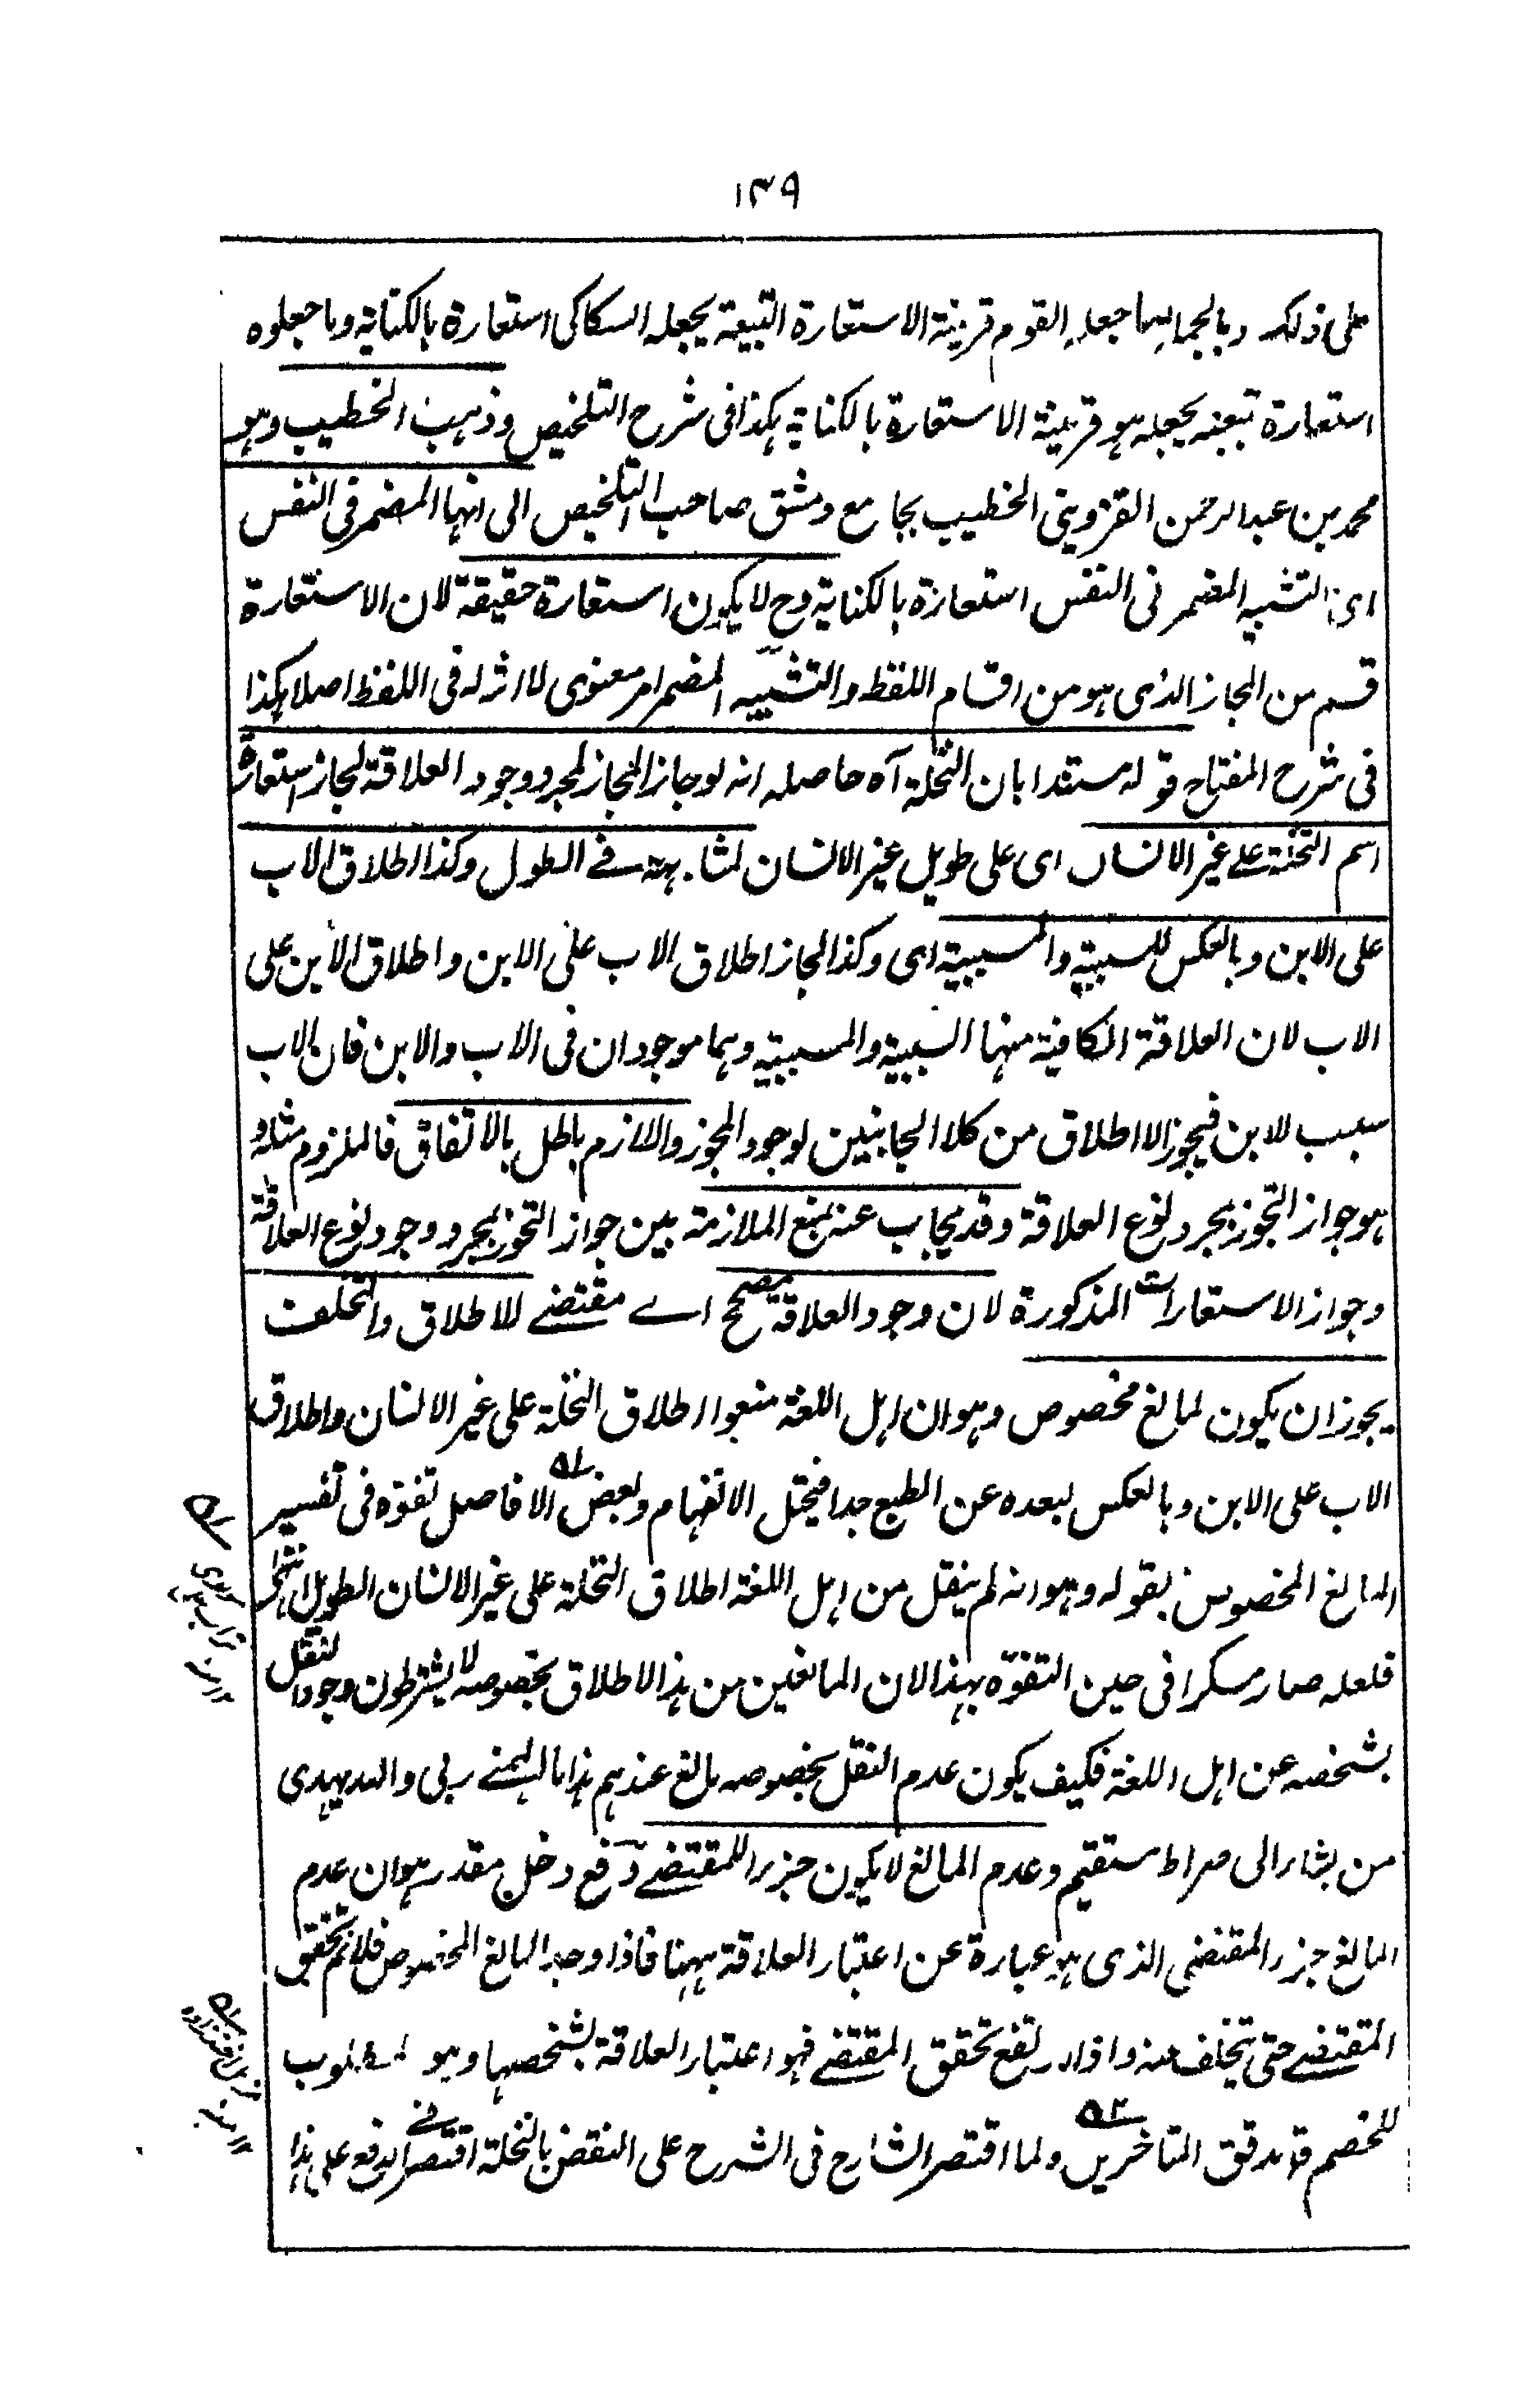 ۱۳۹
على ذلك وبالجملة ما جعله القوم قرينة الاستعارة التبعية يجعله السكاكى استعارة بالكناية وما جعلوه
استعارة تبعية يجعله هو قرينة الاستعارة بالكناية هكذا فى شرح التلخيص وذهب الخطيب وهو
محمد بن عبد الرحمن القزوينى الخطيب بجامع دمشق صاحب التلخيص الى انها المضمر فى النفس
اى التشبيه المضمر فى النفس استعارة بالكناية وح لا يكون استعارة حقيقة لان الاستعارة
قسم من المجاز الذى هو من اقسام اللفظ والتشبيه المضمر امر معنوى لا اثر له فى اللفظ اصلا هكذا
فى شرح المفتاح قوله مستندا بان النخلة آه حاصله انه لو جاز المجاز لمجرد وجود العلاقة لجاز استعارة
اسم النخلة على غير الانسان اى على طويل غير الانسان لمشابهته فے الطول وكذا اطلاق الاب
على الابن وبالعكس للسببية والمسببية اى وكذا لجاز اطلاق الاب على الابن واطلاق الابن على
الاب لان العلاقة الكافية منها السببية والمسببية وهما موجودان فى الاب والابن فان الاب
سبب للابن فيجوز الاطلاق من كلا الجانبين لوجود المجوز واللازم باطل بالاتفاق فالملزوم مثله و
هو جواز التجوز بمجرد نوع العلاقة وقد يجاب عنه بمنع الملازمة بين جواز التجوز بمجرد وجود نوع العلاقة
وجواز الاستعارات المذكورة لان وجود العلاقة مصحح اے مقتضے للاطلاق والتخلف
يجوز ان يكون لمانع مخصوص وهو ان اهل اللغة منعوا اطلاق النخلة على غير الانسان واطلاق
الاب على الابن وبالعكس لبعده عن الطبع جدا فيختل الانفهام وبعض الافاضل تفوّه فى تفسير
المانع المخصوص بقوله وهو انه لم ينقل من اهل اللغة اطلاق النخلة على غير الانسان الطويل انتهى
فلعله صار سكرا فى حين التفوّه بهذا لان المانعين من هذا الاطلاق بخصوصه لا يشترطون وجود النقل
بشخصه عن اهل اللغة فكيف يكون عدم النقل بخصوصه مانع عندهم هذا ما الهمنے ربى والله يهدى
من يشاء الى صراط مستقيم وعدم المانع لا يكون جزء المقتضے دفع دخل مقدر هو ان عدم
المانع جزء المقتضى الذى هو عبارة عن اعتبار العلاقة ههنا فاذا وجد المانع المخصوص فلا ثم تحقق
المقتضے حتى يتخلف عنه واذا ارتفع تحقق المقتضے فهو اعتبار العلاقة بشخصها وهو المطلوب
للخصم قال مدقق المتاخرين ولما اقتصر الشارح فى الشرح على النقض بالنخلة اقتصر فے الدفع على هذا